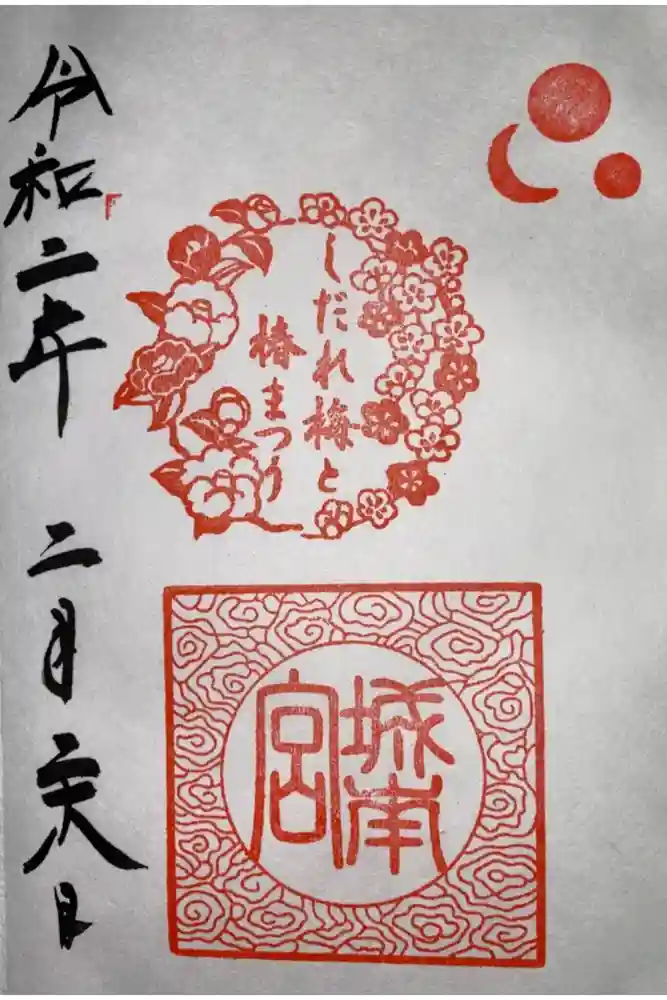 しだれ梅と
椿まつり
城南
宮
令和二年 二月 日